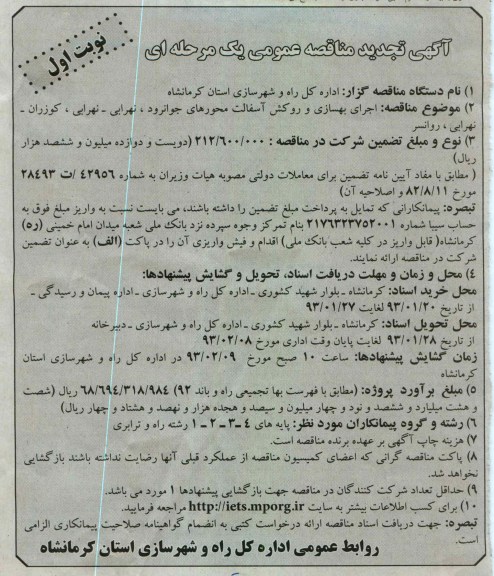 آگهی تجدید مناقصه عمومی یک مرحله ای
نوبت اول
۱) نام دستگاه مناقصه گزار: اداره کل راه و شهرسازی استان کرمانشاه
۲) موضوع مناقصه: اجرای بهسازی و روکش آسفالت محورهای جوانرود ، نهرابی ـ نهرابی ، کوزران ـ
نهرابی ، روانسر
۳) نوع و مبلغ تضمین شرکت در مناقصه : ۲۱۲/۶۰۰/۰۰۰ (دویست و دوازده میلیون و ششصد هزار
ریال)
( مطابق با مفاد آیین نامه تضمین برای معاملات دولتی مصوبه هیات وزیران به شماره ۴۲۹۵۶ /ت ۲۸۴۹۳
مورخ ۸۲/۸/۱۱ و اصلاحیه آن)
تبصره: پیمانکارانی که تمایل به پرداخت مبلغ تضمین را داشته باشند، می بایست نسبت به واریز مبلغ فوق به
حساب سیبا شماره ۲۱۷۶۳۲۳۷۵۲۰۰۱ بنام تمرکز وجوه سپرده نزد بانک ملی شعبه میدان امام خمینی (ره)
کرمانشاه( قابل واریز در کلیه شعب بانک ملی) اقدام و فیش واریزی آن را در پاکت (الف) به عنوان تضمین
شرکت در مناقصه ارائه نمایند.
۴) محل و زمان و مهلت دریافت اسناد، تحویل و گشایش پیشنهادها:
محل خرید اسناد: کرمانشاه ـ بلوار شهید کشوری ـ اداره کل راه و شهرسازی ـ اداره پیمان و رسیدگی ـ
از تاریخ ۹۳/۰۱/۲۰ لغایت ۹۳/۰۱/۲۷
محل تحویل اسناد: کرمانشاه ـ بلوار شهید کشوری ـ اداره کل راه و شهرسازی ـ دبیرخانه
از تاریخ ۹۳/۰۱/۲۸ لغایت پایان وقت اداری مورخ ۹۳/۰۲/۰۸
زمان گشایش پیشنهادها: ساعت ۱۰ صبح مورخ ۹۳/۰۲/۰۹ در اداره کل راه و شهرسازی استان
کرمانشاه
۵) مبلغ برآورد پروژه: (مطابق با فهرست بها تجمیعی راه و باند ۹۲) ۶۸/۶۹۴/۳۱۸/۹۸۴ ریال (شصت
و هشت میلیارد و ششصد و نود و چهار میلیون و سیصد و هجده هزار و نهصد و هشتاد و چهار ریال)
۶) رشته و گروه پیمانکاران مورد نظر: پایه های ۴ـ۳ـ۲ـ۱ رشته راه و ترابری
۷) هزینه چاپ آگهی بر عهده برنده مناقصه است.
۸) پاکت مناقصه گرانی که اعضای کمیسیون مناقصه از عملکرد قبلی آنها رضایت نداشته باشند بازگشایی
نخواهد شد.
۹) حداقل تعداد شرکت کنندگان در مناقصه جهت بازگشایی پیشنهادها ۱ مورد می باشد.
۱۰) برای کسب اطلاعات بیشتر به سایت http://iets.mporg.ir مراجعه فرمایید.
تبصره: جهت دریافت اسناد مناقصه ارائه درخواست کتبی به انضمام گواهینامه صلاحیت پیمانکاری الزامی
است.
روابط عمومی اداره کل راه و شهرسازی استان کرمانشاه